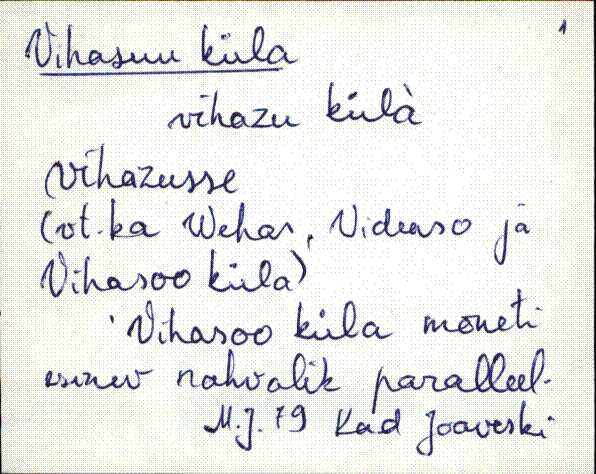 1
Vihasuu küla
vihazu külà
vihazusse
(vt. ka Wehas, Videaso ja
Vihasoo küla)
Vihasoo küla mõneti
esinev rahvalik parallel-
M.J. 79 Kad Joaveski